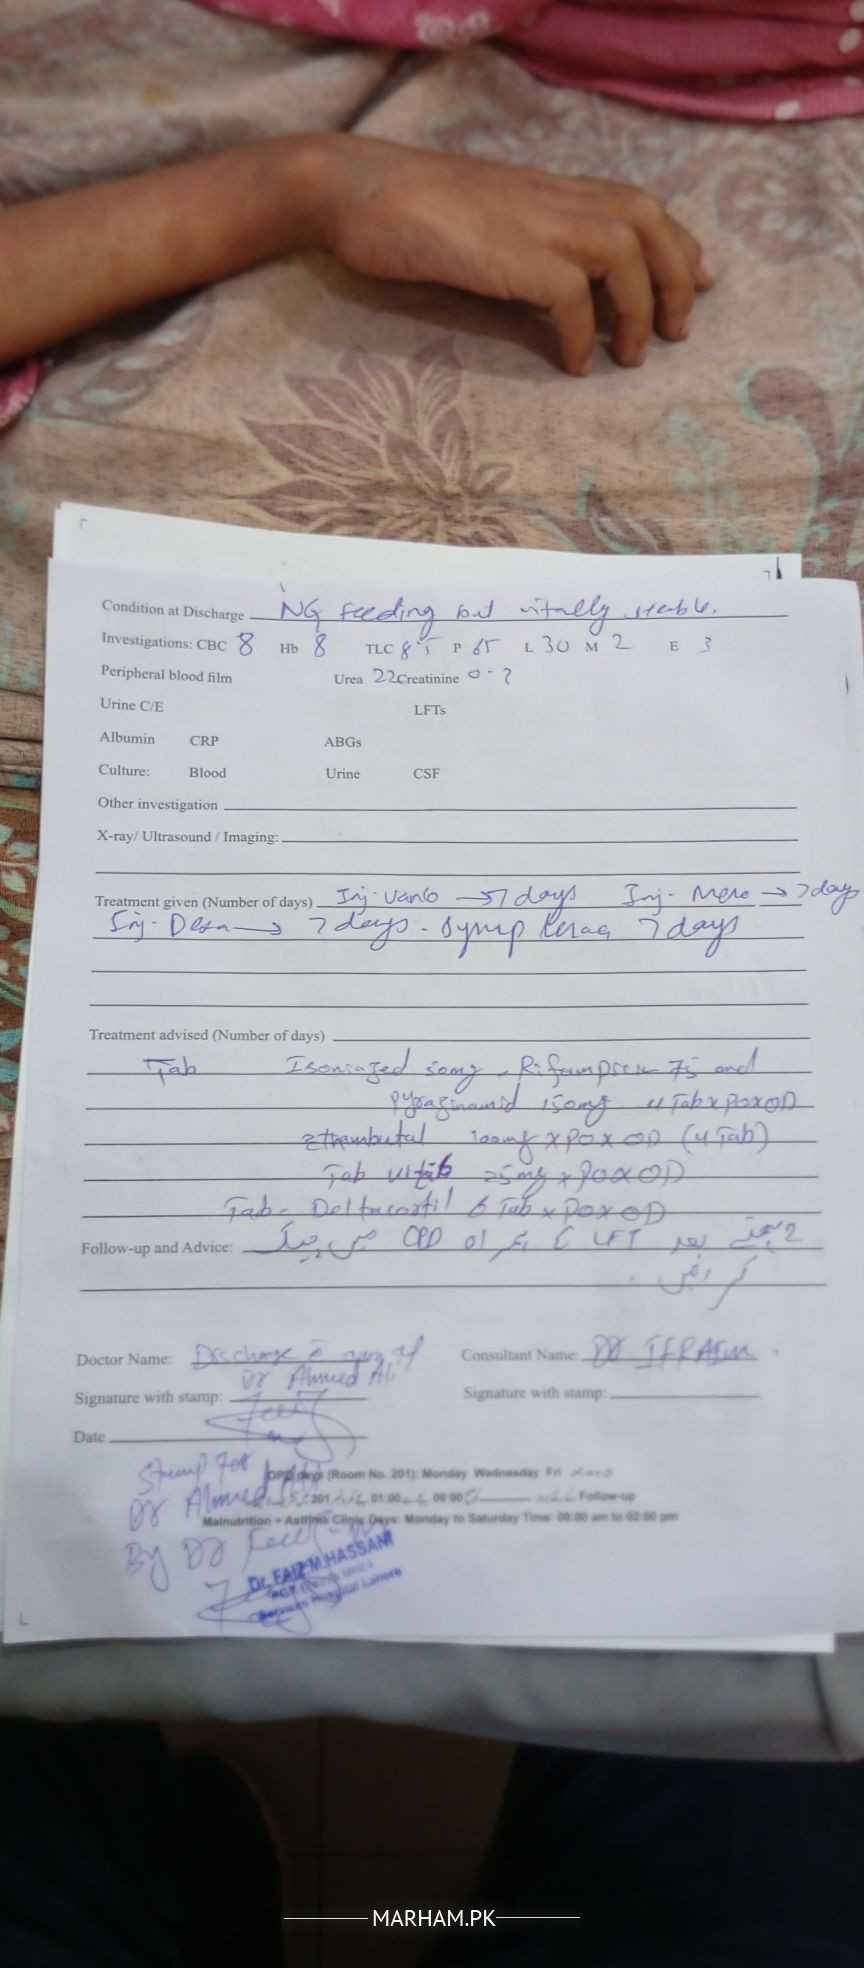 Condition at Discharge NG feeding but vitally stable.
Investigations: CBC 8 Hb 8 TLC 8.5 P 65 L 30 M 2 E 3
Peripheral blood film Urea 22 Creatinine 0.7
Urine C/E LFTs
Albumin CRP ABGs
Culture: Blood Urine CSF
Other investigation
X-ray/ Ultrasound / Imaging:
Treatment given (Number of days) Inj. Vanco → 7 days Inj. Mero → 7 days
Inj. Dexa → 7 days. Syrup 7 days
Treatment advised (Number of days)
Tab Isoniazed 50mg, Rifampicin 75 and
Pyrazinamid 150mg 4 Tab x PO x OD
Ethambutal 100mg x PO x OD (4 Tab)
Tab vita6 25mg x PO x OD
Tab- Deltacortil 6 Tab x PO x OD
Follow-up and Advice: 2 ہفتے بعد LFT کے ہمراہ OPD میں چیک
Doctor Name: Discharge Consultant Name: Dr
Dr Ahmed Ali
Signature with stamp: Signature with stamp:
Date
Stamp For OPD days (Room No. 201): Monday Wednesday Fri
Dr Ahmed 201 01:00 09:00 Follow-up
Malnutrition + Asthma Clinic Days: Monday to Saturday Time: 08:00 am to 02:00 pm
By Dr
Dr. FAIZ M.HASSAN
Services Hospital Lahore
MARHAM.PK